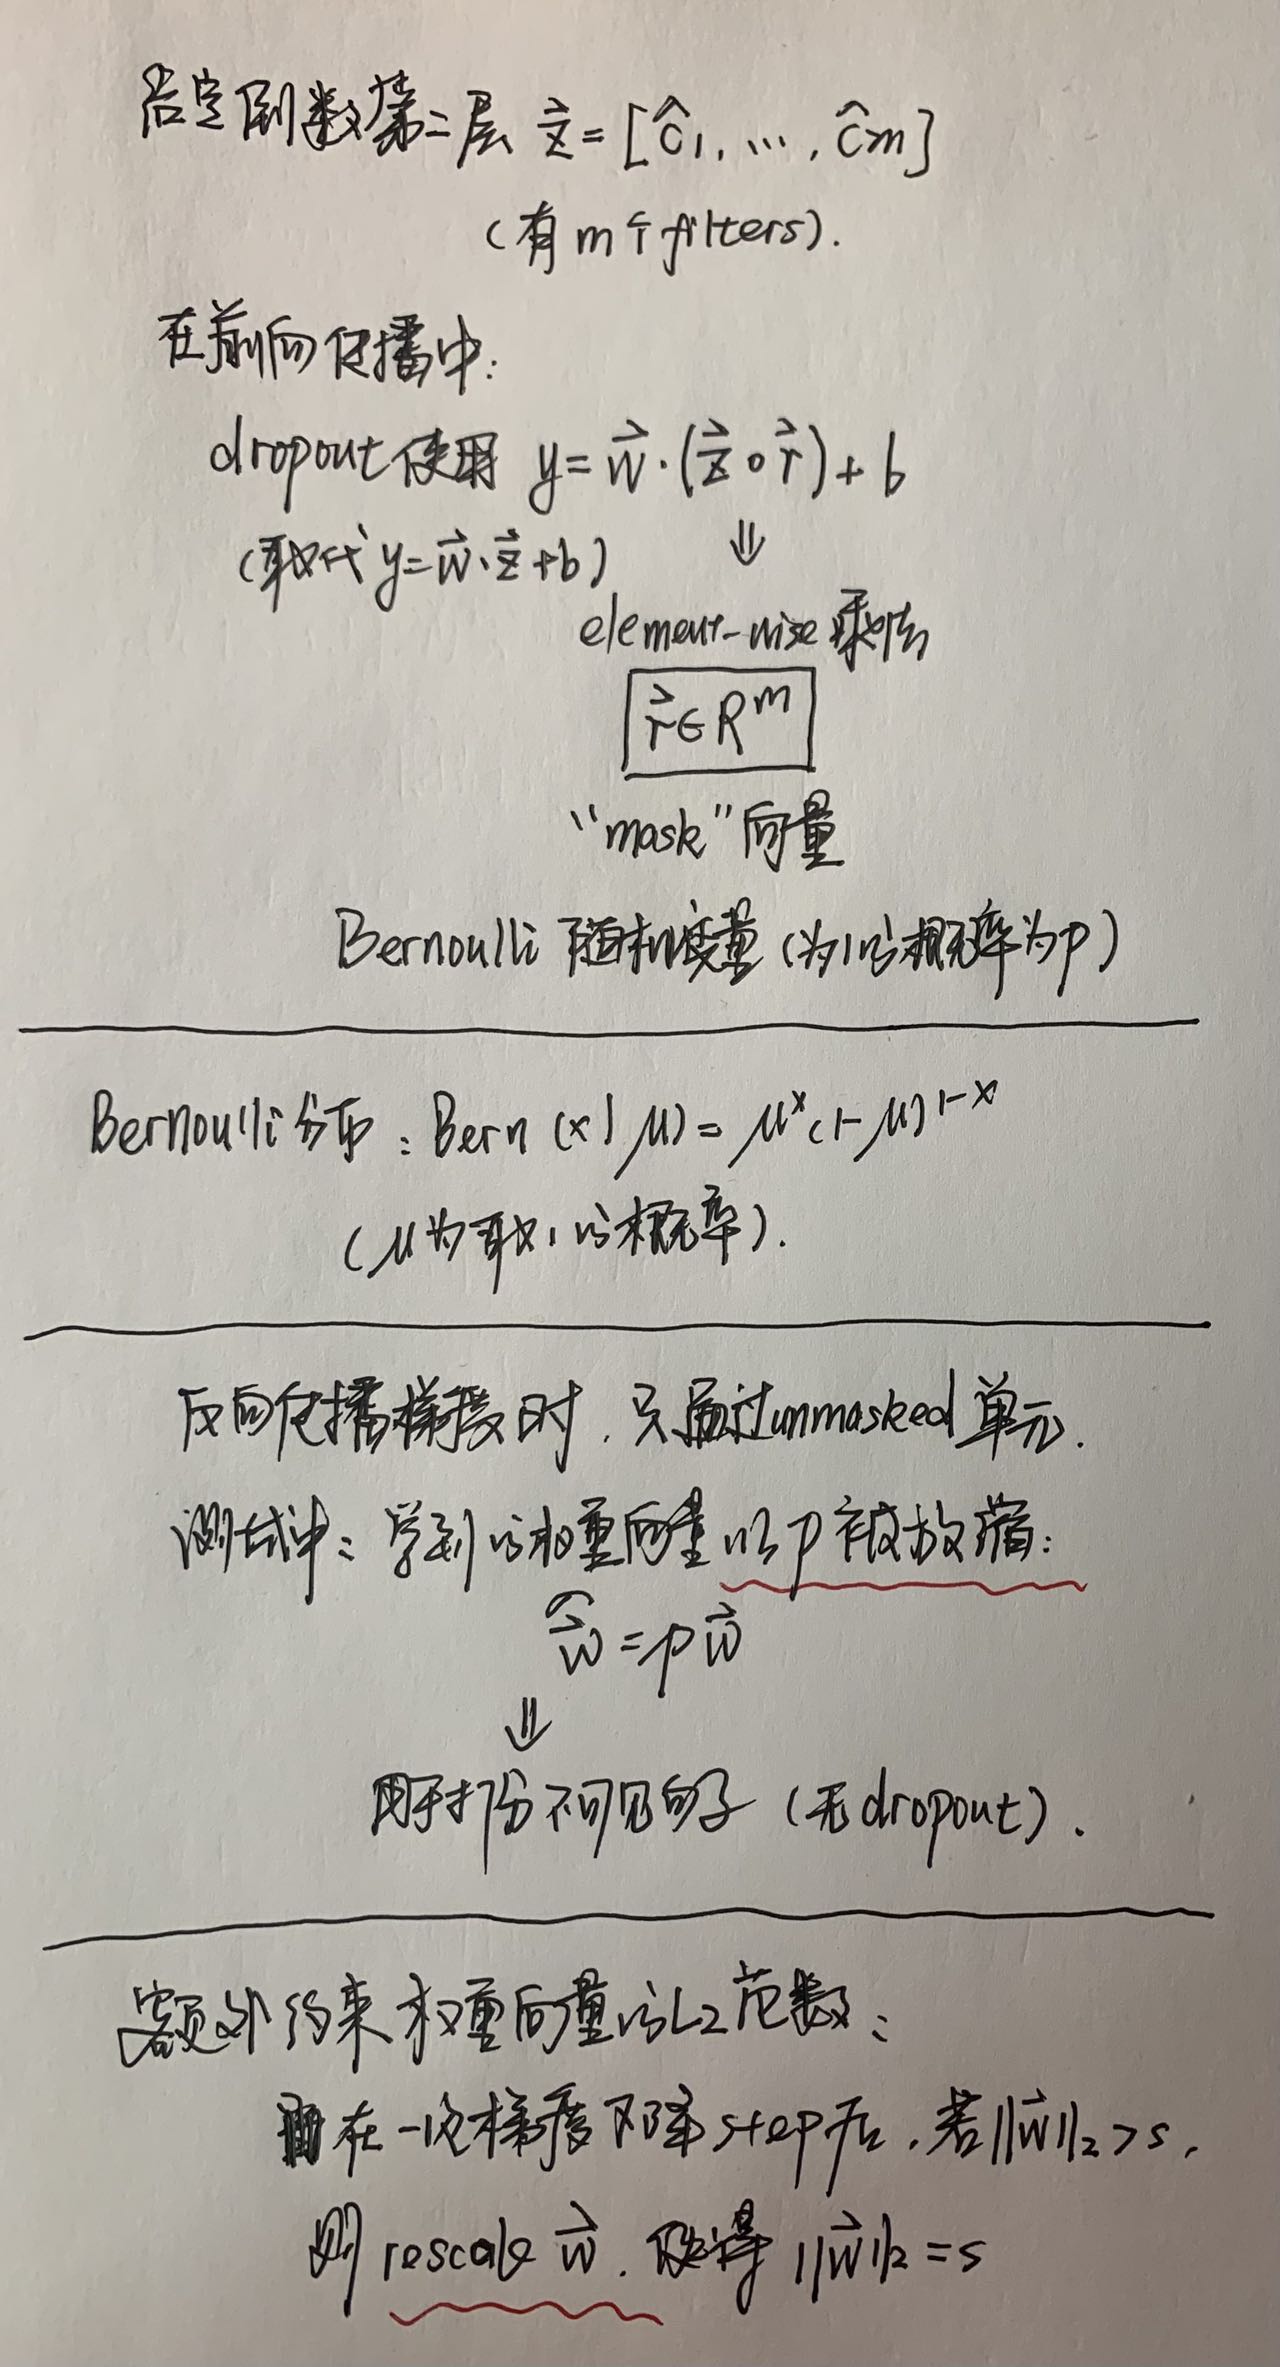 给定倒数第二层 z⃗ = [ĉ1, ..., ĉm]
(有m个filters).
在前向传播中:
dropout使用 y = w⃗·(z⃗∘r⃗) + b
(取代 y = w⃗·z⃗ + b) ⇓
element-wise乘法
r⃗ ∈ R^m
"mask"向量
Bernoulli 随机变量 (为1的概率为p)
Bernoulli分布: Bern(x|μ) = μ^x(1-μ)^(1-x)
(μ为取1的概率).
反向传播梯度时, 只通过unmasked单元.
测试中: 学到的权重向量以p被放缩:
ŵ⃗ = pw⃗
⇓
用于打分不可见句子 (无dropout).
额外约束权重向量的L2范数:
在一次梯度下降step后, 若||w⃗||2 > s,
则 rescale w⃗, 使得 ||w⃗||2 = s